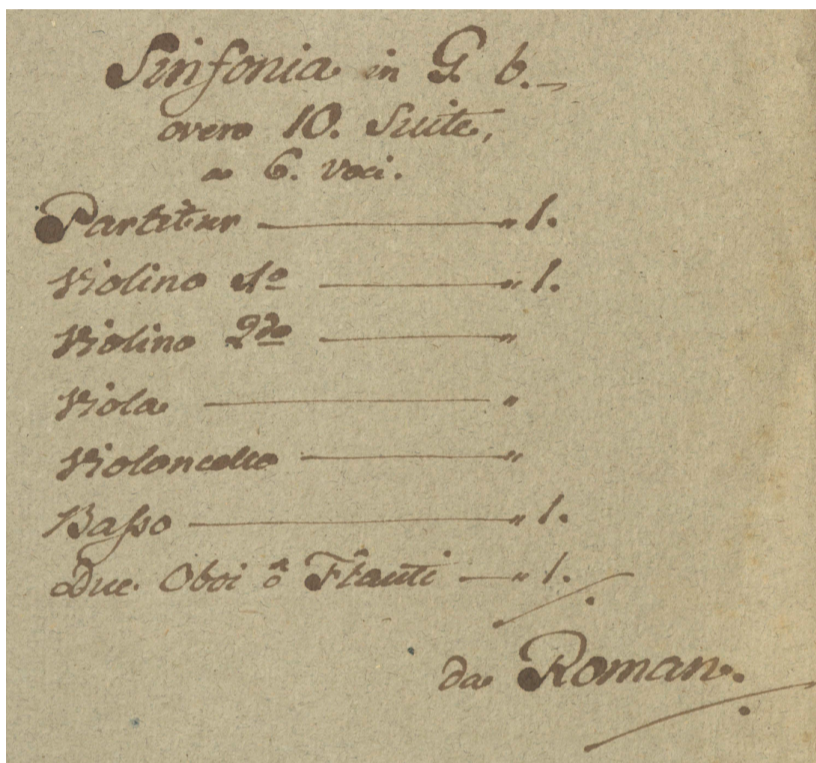 Sinfonia in G. b.
overo 10. Suite,
a 6. voci.
Partitur — „ 1.
Violino 1o — „ 1.
Violino 2do — „
Viola — „
Violoncello — „
Basso — „ 1.
Due Oboi ô Flauti — „ 1.
da Roman.